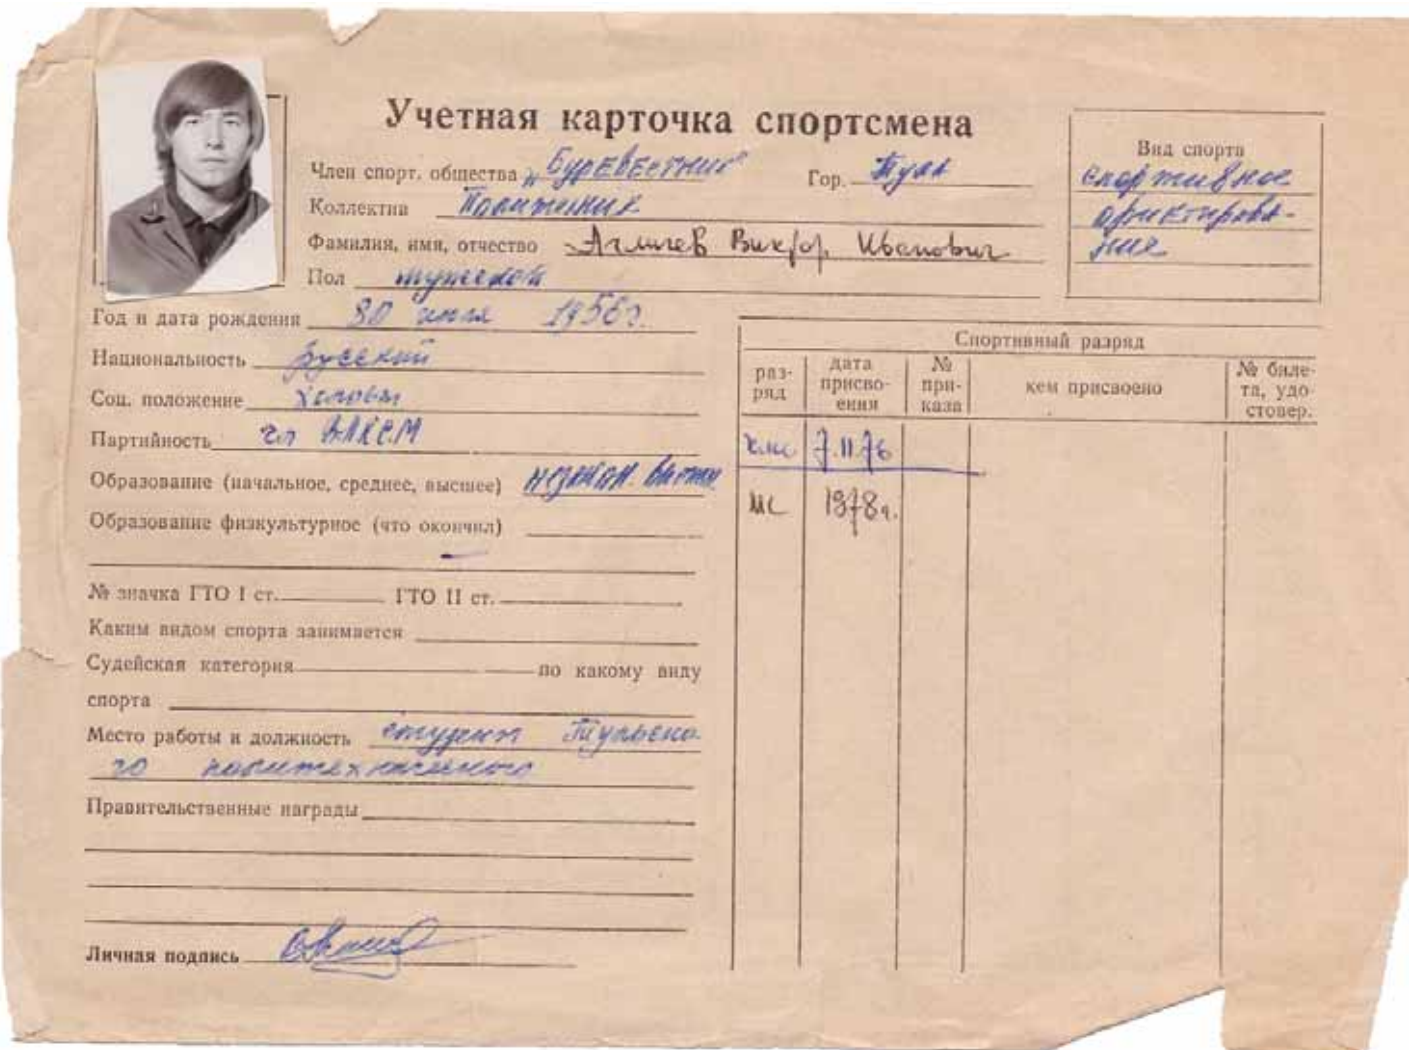 Учетная карточка спортсмена
Член спорт. общества „Буревестник" Гор. Тула
Коллектив Политехник
Фамилия, имя, отчество Виктор Иванович
Пол мужской
Вид спорта
спортивное
ориентирова-
ние
Год и дата рождения 30 1956г.
Национальность русский
Соц. положение холост
Партийность чл ВЛКСМ
Образование (начальное, среднее, высшее) незакон. высш.
Образование физкультурное (что окончил)
№ значка ГТО I ст. ГТО II ст.
Каким видом спорта занимается
Судейская категория по какому виду
спорта
Место работы и должность студент Тульско-
го политехнического
Правительственные награды
Личная подпись
Спортивный разряд
раз-
ряд
дата
присво-
ения
№
при-
каза
кем присвоено
№ биле-
та, удо-
стовер.
кмс 7.11.76
мс 1978г.